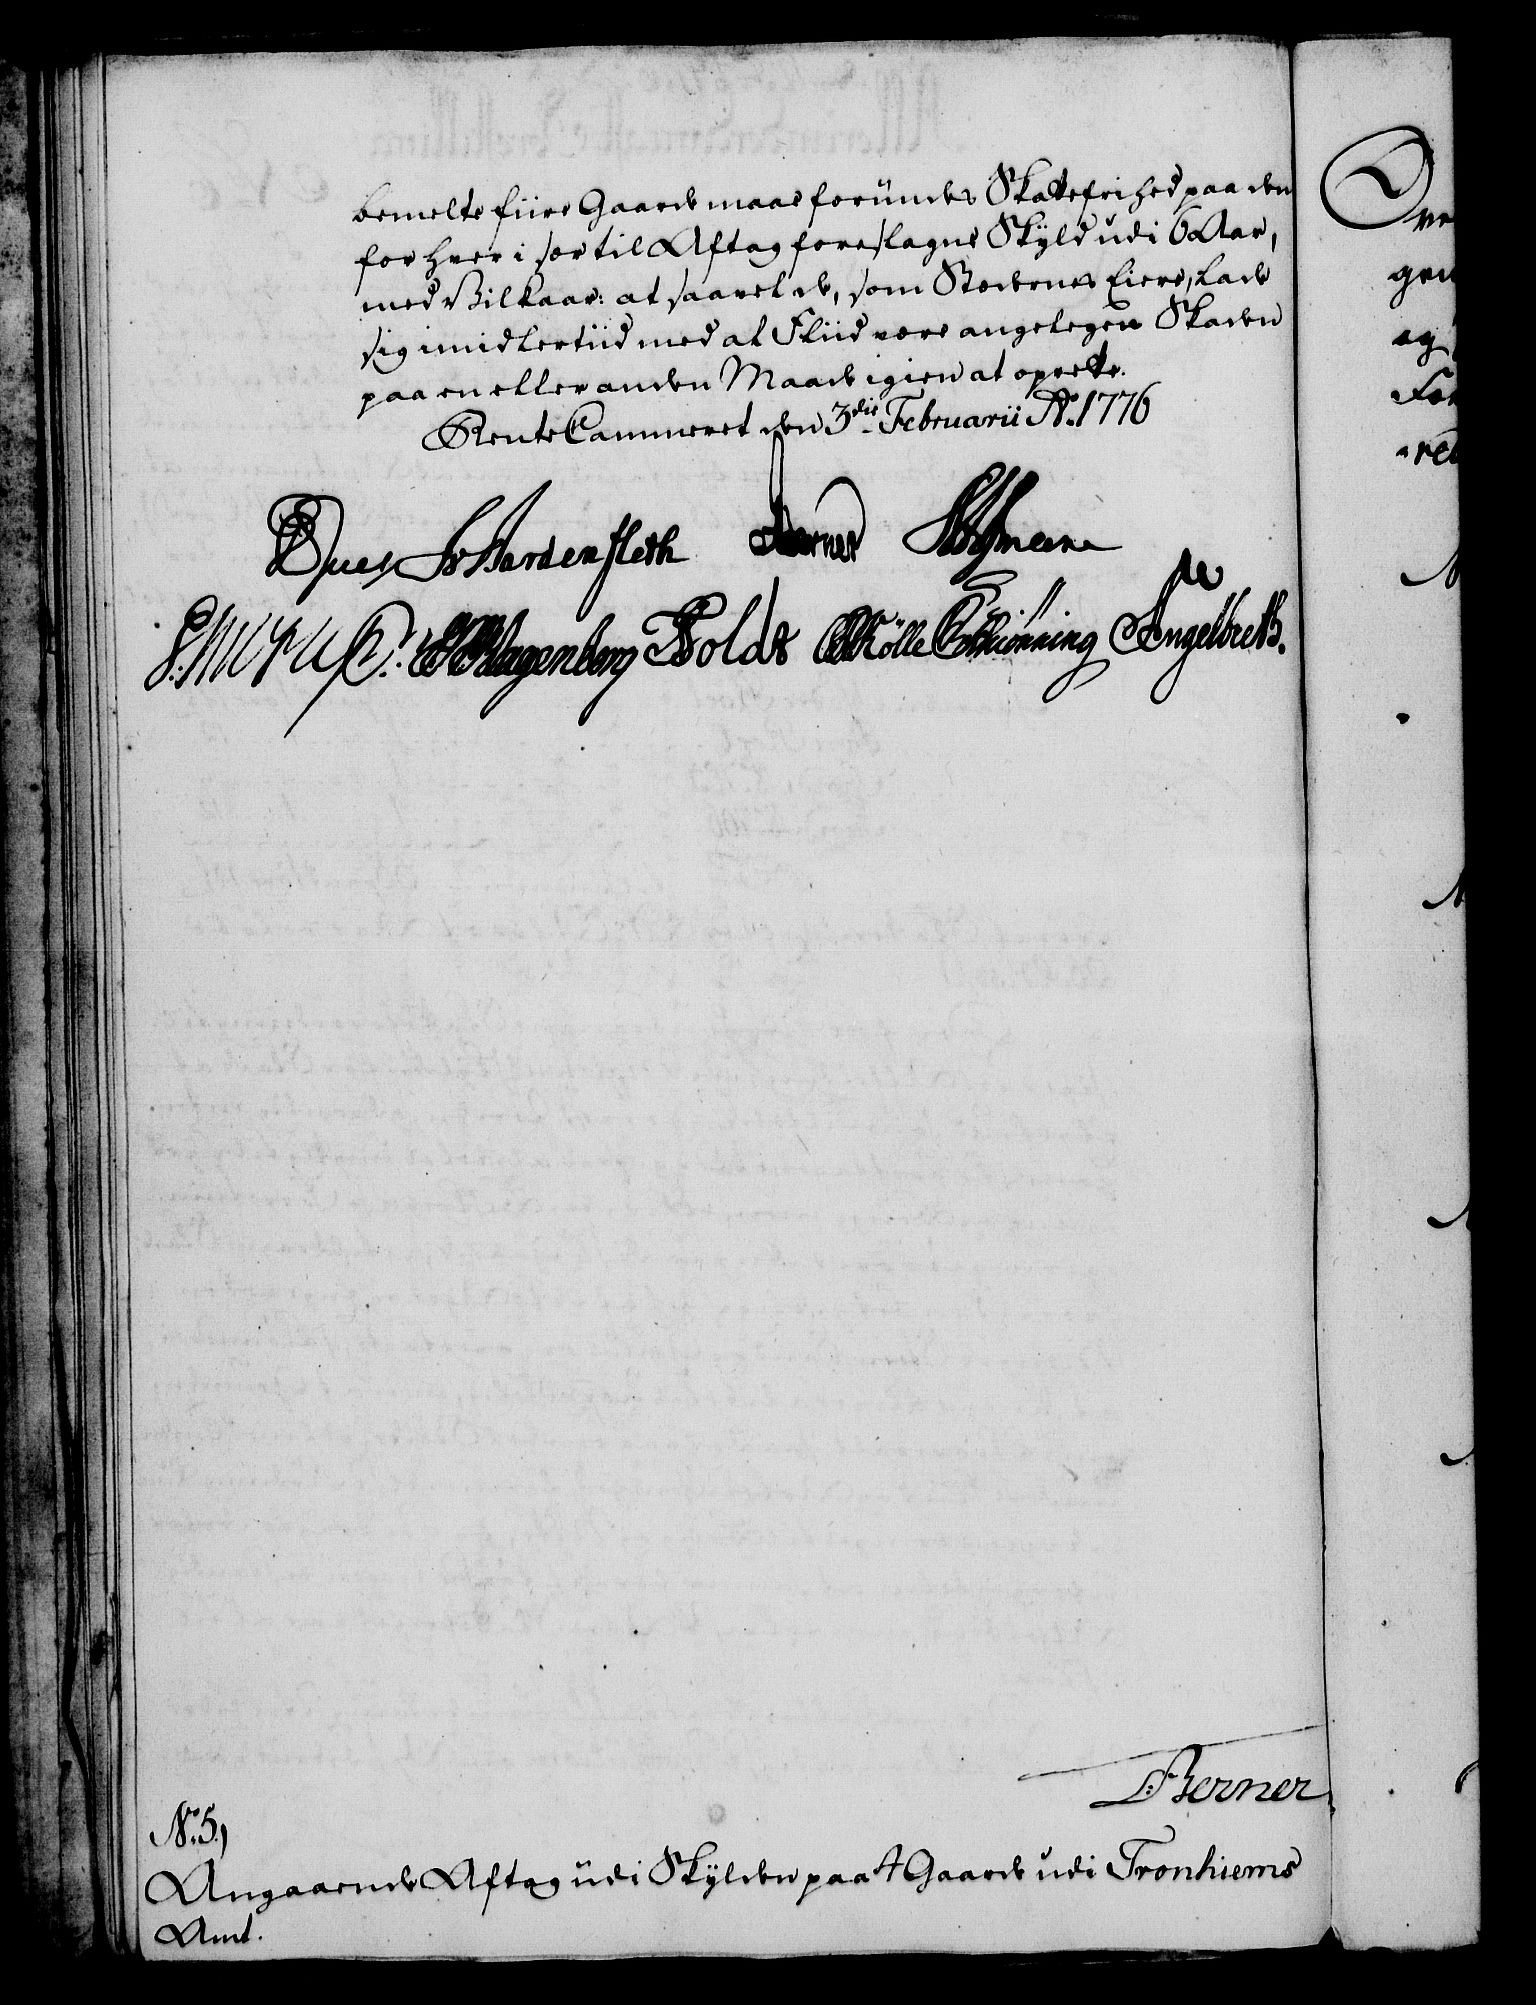 bemelte fiire Gaarde maae forundes Skattefrihed paa den
for hver i sær til Aftag foreslagne Skyld udi 6 Aar,
med Vilkaar: at saavel de, som Stædernes Eiere, lade
sig imidlertiid med al Fliid være angelegen Skaden
paa en eller anden Maade igien at oprette.
Rente Cammeret den 3die Februarii Ao. 1776
Wardenfleth Berner
Klagenberg Holdt Rølle Schiønning Engelbreth.
Berner
No. 5,
Angaaende Aftag udi Skylden paa 4 Gaarde udi Tronhiems
Amt.